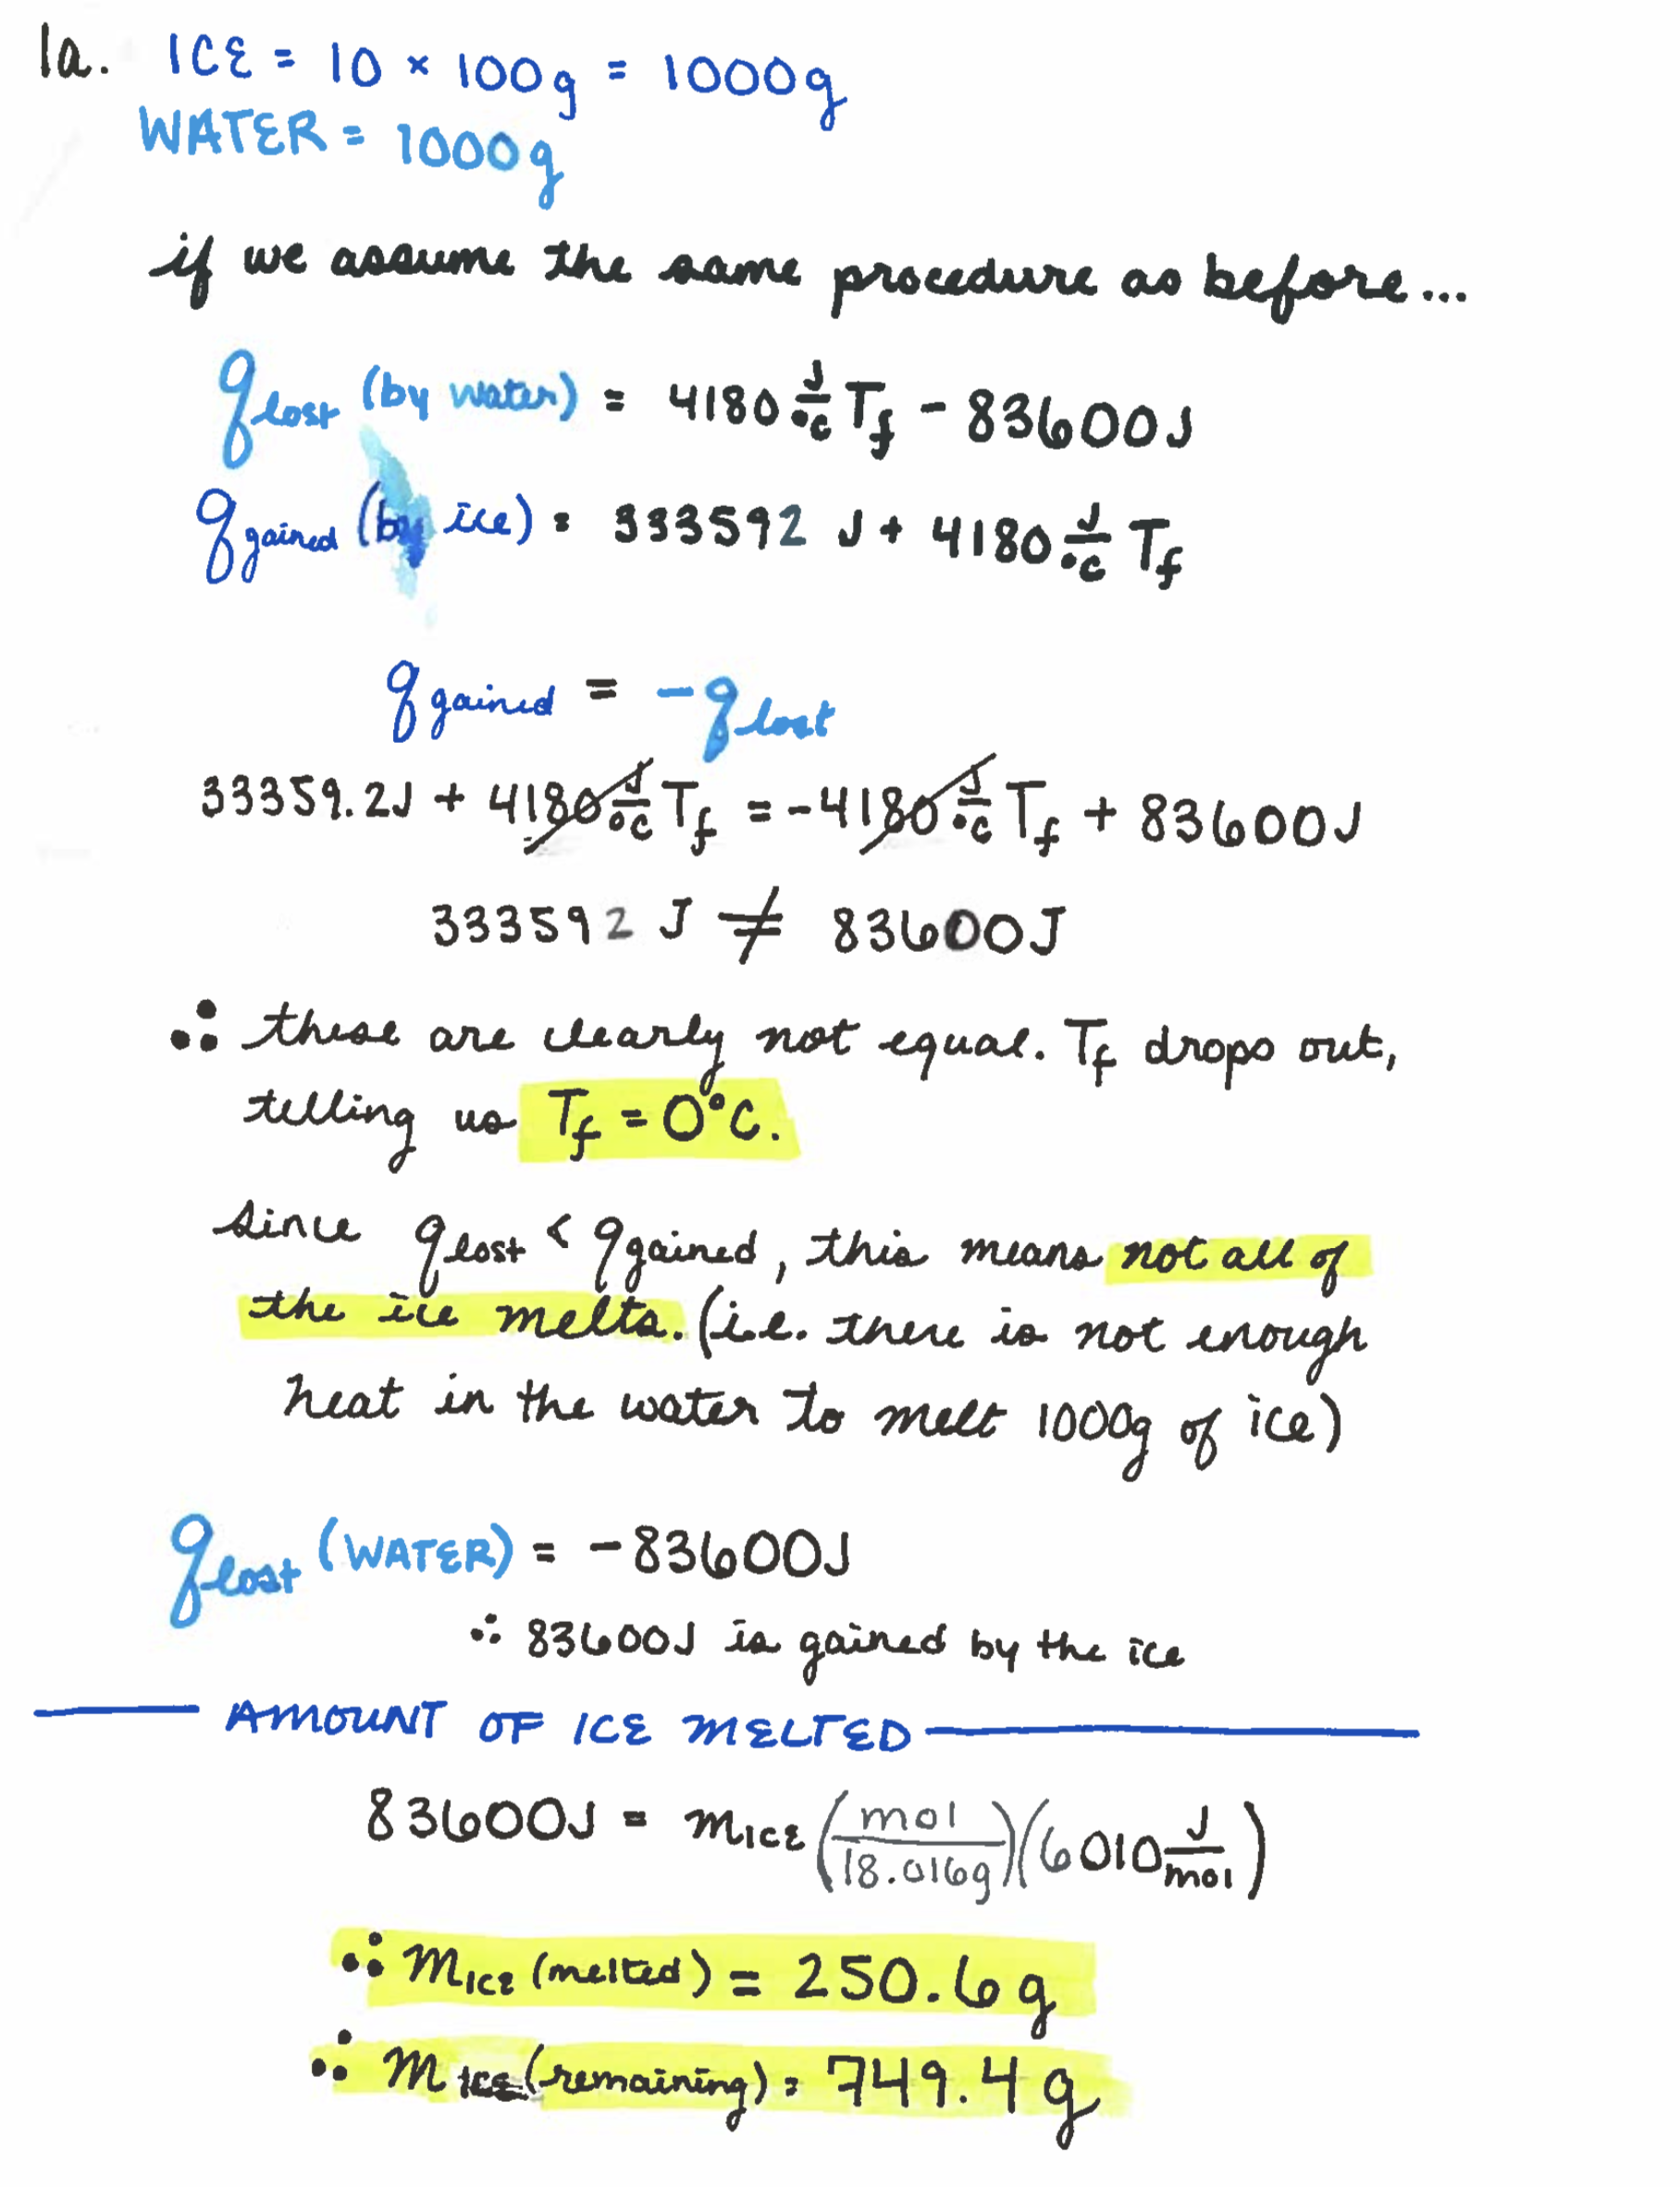 1a. ICE = 10 × 100g = 1000g
WATER = 1000g
if we assume the same procedure as before...
q lost (by water) = 4180 J/°C Tf - 83600J
q gained (by ice) = 333592 J + 4180 J/°C Tf
q gained = -q lost
33359.2J + 4180 J/°C Tf = -4180 J/°C Tf + 83600J
333592 J ≠ 83600J
∴ these are clearly not equal. Tf drops out,
telling us Tf = 0°C.
since q lost < q gained, this means not all of
the ice melts. (i.e. there is not enough
heat in the water to melt 1000g of ice)
q lost (WATER) = -83600J
∴ 83600J is gained by the ice
AMOUNT OF ICE MELTED
83600J = m ICE (mol/18.016g)(6010 J/mol)
∴ m ICE (melted) = 250.6g
∴ m ICE (remaining) = 749.4g